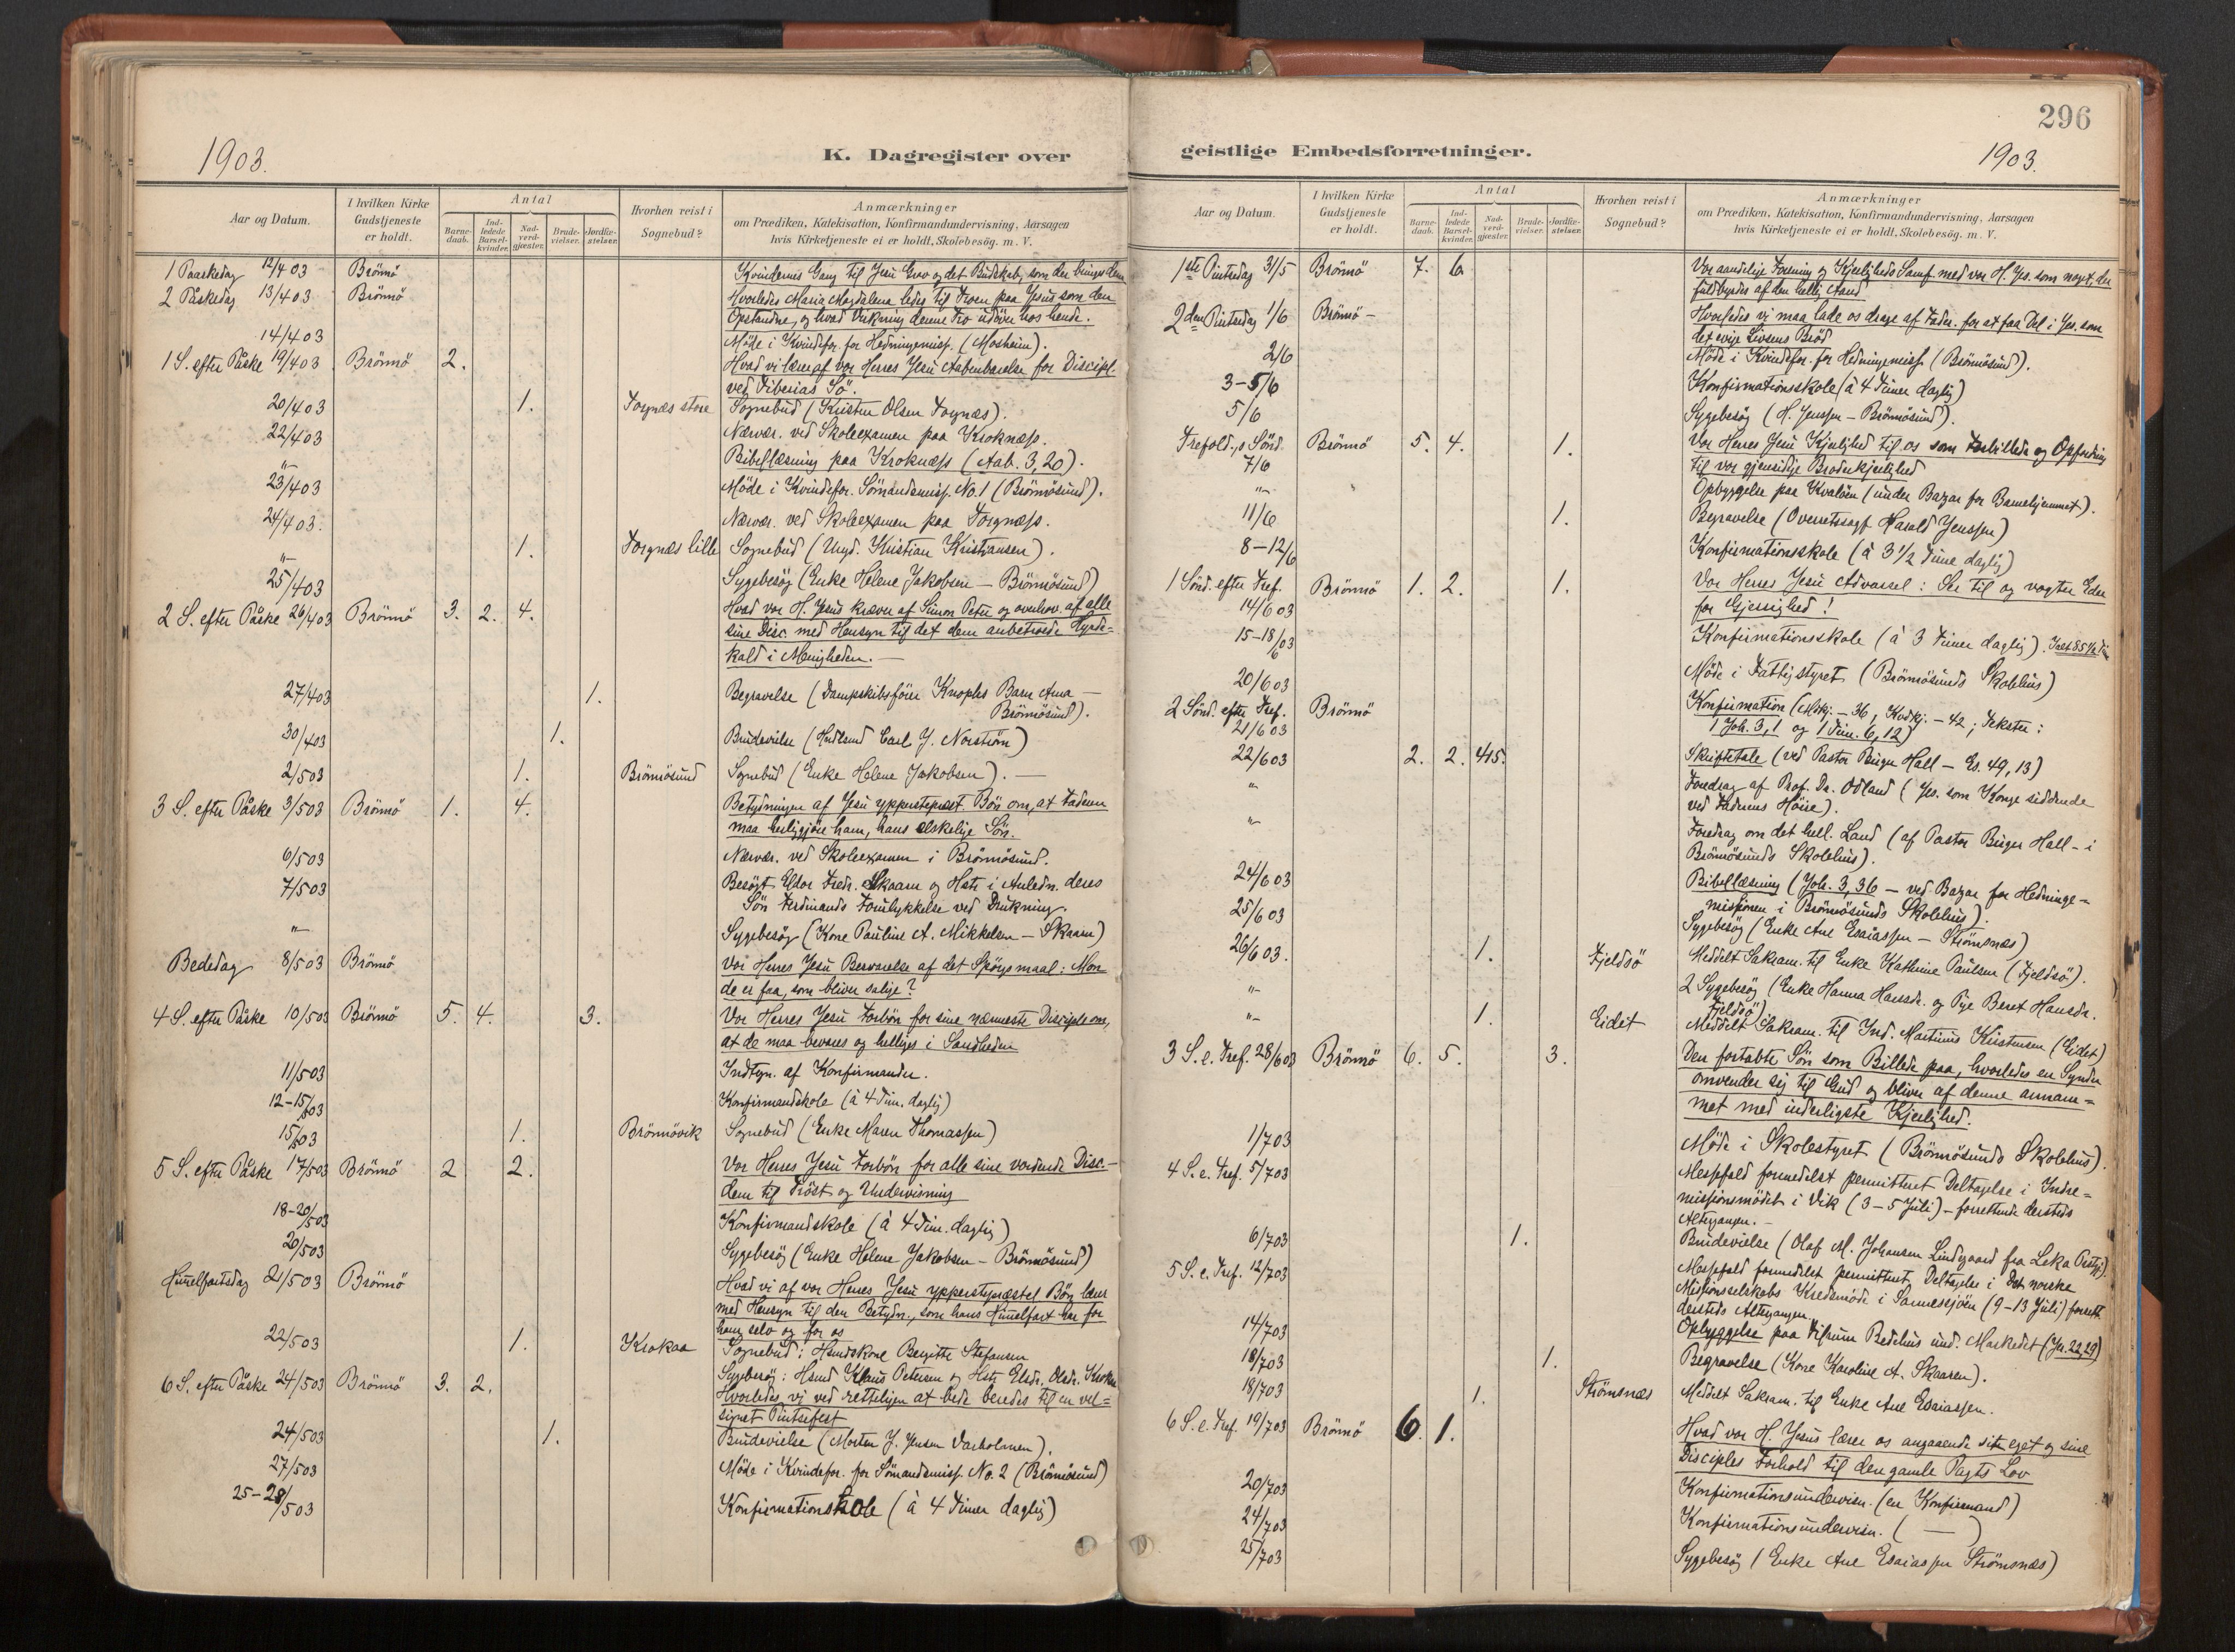 1903.
K. Dagregister over
Aar og Datum.
I hvilken Kirke
Gudstjeneste
er holdt.
Antal
Barne-
daab.
Ind-
ledede
Barsel-
kvinder.
Nad-
verd-
gjæster.
Brude-
vielser.
Jordfæ-
stelser.
Hvorhen reist i
Sognebud?
Anmærkninger
om Prædiken, Katekisation, Konfirmandundervisning, Aarsagen
hvis Kirketjeneste ei er holdt, Skolebesög. m. V.
1 Paaskedag 12/4 03 Brönnö Kvindernes Gang til Jesu Grav og det Budskab, som der bringes dem
2 Påskedag 13/4 03 Brönnö Hvorledes Maria Magdalena ledes til Troen paa Jesus som den
Opstandne, og hvad Virkning denne Tro udöver hos hende.
14/4 03 Möde i Kvindefor. for Hedningemiss. (Mosheim).
1 S. efter Påske 19/4 03 Brönnö 2. Hvad vi lære af vor Herres Jesu Aabenbarelse for Discipl.
ved Tiberias Sö.
20/4 03 1. Torgnæs store Sognebud (Kristen Olsen Torgnæs).
22/4 03 Nærvær. ved Skoleexamen paa Kroknæss.
"- Bibellæsning paa Kroknæss (Aab. 3, 20).
23/4 03 Möde i Kvindefor. Sömandsmiss. No. 1 (Brönnösund).
24/4 03. Nærvær. ved Skoleexamen paa Torgnæss.
"- 1. Torgnæs lille Sognebud (Ungk. Kristian Kristiansen).
25/4 03 Sygebesög (Enke Helene Jakobsen – Brönnösund)
2 S. efter Påske 26/4 03 Brönnö 3. 2. 4. Hvad vor H. Jesus kræver af Simon Peter og overhov. af alle
sine Disc. med Hensyn til det dem anbetroede Hyrde-
kald i Menigheden. –
27/4 03 1. Begravelse (Dampskibsförer Knophs Barn Anna –
Brönnösund).
30/4 03 1. Brudevielse (Carl J. Norström)
2/5 03 1. Brönnösund Sognebud (Enke Helene Jakobsen). –
3 S. efter Påske 3/5 03 Brönnö 1. 4. Betydningen af Jesu ypperstepræst. Bön om, at Faderen
maa herliggjöre ham, hans elskelige Sön.
6/5 03 Nærvær. ved Skoleexamen i Brönnösund.
7/5 03 Besögt Eldor Fredr. Skaarn og Hstr. i Anledn. deres
Sön Ferdinands Forulykkelse ved Drukning.
"- Sygebesög (Kone Pauline A. Mikkelsen – Skaarn)
Bededag 8/5 03 Brönnö Vor Herres Jesu Besvarelse af det Spörgsmaal: Mon
de er faa, som bliver salige?
4 S. efter Påske 10/5 03 Brönnö 5. 4. 3. Vor Herres Jesu Forbön for sine nærmeste Disciple om,
at de maa bevares og helliges i Sandheden
11/5 03 Indtegn. af Konfirmander.
12–15/5 03 Konfirmandskole (à 4 Tim. daglig)
15/5 03 1. Brönnövik Sognebud (Enke Maren Thomassen)
5 S. efter Påske 17/5 03 Brönnö 2 2. Vor Herres Jesu Forbön for alle sine vordende Disc. –
dem til Tröst og Undervisning
18–20/5 03 Konfirmandskole (à 4 Tim. daglig)
20/5 03 Sygebesög (Enke Helene Jakobsen – Brönnösund)
Himmelfartsdag 21/5 03 Brönnö Hvad vi af vor Herres Jesu ypperstepræstel. Bön lære
med Hensyn til den Betydn., som hans Himmelfart har for
ham selv og for os
22/5 03 1. Krokaa Sognebud: Hsmdskone Bergitte Stefansen
Sygebesög: Hsmd Klaus Petersen og Hstr.
6 S. efter Påske 24/5 03 Brönnö 3. 2. Hvorledes vi ved retteligen at bede beredes til en vel-
signet Pintsefest
24/5 03 1. Brudevielse (Morten J. Jensen Varholmen).
27/5 03 Möde i Kvindefor. for Sömandsmiss. No. 2 (Brönnösund)
25–28/5 03 Konfirmationskole (à 4 Timer daglig)
296
geistlige Embedsforretninger.
1903.
Aar og Datum.
I hvilken Kirke
Gudstjeneste
er holdt.
Antal
Barne-
daab.
Ind-
ledede
Barsel-
kvinder.
Nad-
verd-
gjæster.
Brude-
vielser.
Jordfæ-
stelser.
Hvorhen reist i
Sognebud?
Anmærkninger
om Prædiken, Katekisation, Konfirmandundervisning, Aarsagen
hvis Kirketjeneste ei er holdt, Skolebesög. m. V.
1ste Pintsedag 31/5 Brönnö 7. 6 Vor aandelige Forening og Kjærligheds Samf. med vor H. Jes. som noget, der
fuldbyrdes af den hellig Aand
2den Pintsedag 1/6 Brönnö – Hvorledes vi maa lade os drage af Fader. for at faa Del i Jes. som
det evige Livsens Bröd
2/6 Möde i Kvindefor. for Hedningemiss. (Brönnösund).
3–5/6 Konfirmationsskole (à 4 Timer daglig)
5/6 Sygebesög (H. Jenssen – Brönnösund).
Trefold.s Sönd. 7/6 Brönnö 5. 4. 1. Vor Herres Jesu Kjærlighed til os som Forbillede og Opfordring
til vor gjensidige Broderkjærlighed
"- Opbyggelse paa Kvalöen (under Bazar for Barnehjemmet).
11/6 1. Begravelse (Overretssagf. Harald Jenssen)
8–12/6 Konfirmationsskole (à 3 1/2 Time daglig)
1 Sönd. efter Tref. 14/6 03 Brönnö 1. 2. 1. Vor Herres Jesu Advarsel: Ser til og vogter Eder
for Gjerrighed!
15–18/6 03 Konfirmationsskole (à 3 Timer daglig). Ialt 85 1/2 Tim
20/6 03 Möde i Fattigstyret (Brönnösunds Skolehus)
2 Sönd. efter Tref. 21/6 03 Brönnö Konfirmation (Mskj. – 36, Kvdkj. – 42; Tekster:
1 Joh. 3, 1 og 1 Tim. 6, 12)
22/6 03 2. 2. 415. Skriftetale (ved Pastor Birger Hall – Es. 49, 13)
"- Foredrag af Prof. Dr. Odland (Jes. som Konge siddende
ved Faderens Höire).
"- Foredrag om det hell. Land (af Pastor Birger Hall – i
Brönnösunds Skolehus).
24/6 03 Bibellæsning (Joh. 3, 36 – ved Bazar for Hedninge-
missionen i Brönnösunds Skolehus).
25/6 03 Sygebesög (Enke Ane Esaiassen – Strömsnæs)
26/6 03. 1. Fjeldsö Meddelt Sakram. til Enke Kathrine Paulsen (Fjeldsö).
"- 2 Sygebesög (Enke Hanna Hansdr. og Pige Beret Hansdr.
Fjeldsö)
"- 1. Eidet Meddelt Sakram. til Ind. Martinus Kristensen (Eidet)
3 S. e. Tref. 28/6 03 Brönnö 6. 5. 3. Den fortabte Sön som Billede paa, hvorledes en Synder
omvender sig til Gud og bliver af denne annam-
met med inderligste Kjærlighed.
1/7 03 Möde i Skolestyret (Brönnösunds Skolehus).
4 S. e. Tref. 5/7 03 Messefald formedelst permitteret Deltagelse i Indre-
missionsmödet i Vik (3–5 Juli) – forrettende dersteds
Altergangen. –
6/7 03 1. Brudevielse (Olaf M. Johansen Lindgaard fra Leka Prstgj)
5 S. e. Tref. 12/7 03 Messefald formedelst permitteret Deltagelse i Det norske
Missionsselskabs Kredsmöde i Sannessjöen (9–13 Juli) forrett.
dersteds Altergangen
14/7 03 Opbyggelse paa Tilrum Bedehus und. Markedet (Jer. 22, 29)
18/7 03 1. Begravelse (Kone Karoline A. Skaaren).
18/7 03 1. Strömsnæs Meddelt Sakram. til Enke Ane Esaiassen.
6 S. e. Tref. 19/7 03 Brönnö 6. 1. Hvad vor H. Jesus lærer os angaaende sit eget og sine
Disciples Forhold til den gamle Pagts Lov
20/7 03 Konfirmationsundervisn. (en Konfirmand)
24/7 03 Konfirmationsundervisn. ( — )
25/7 03 Sygebesög (Enke Ane Esaiassen Strömsnæs)